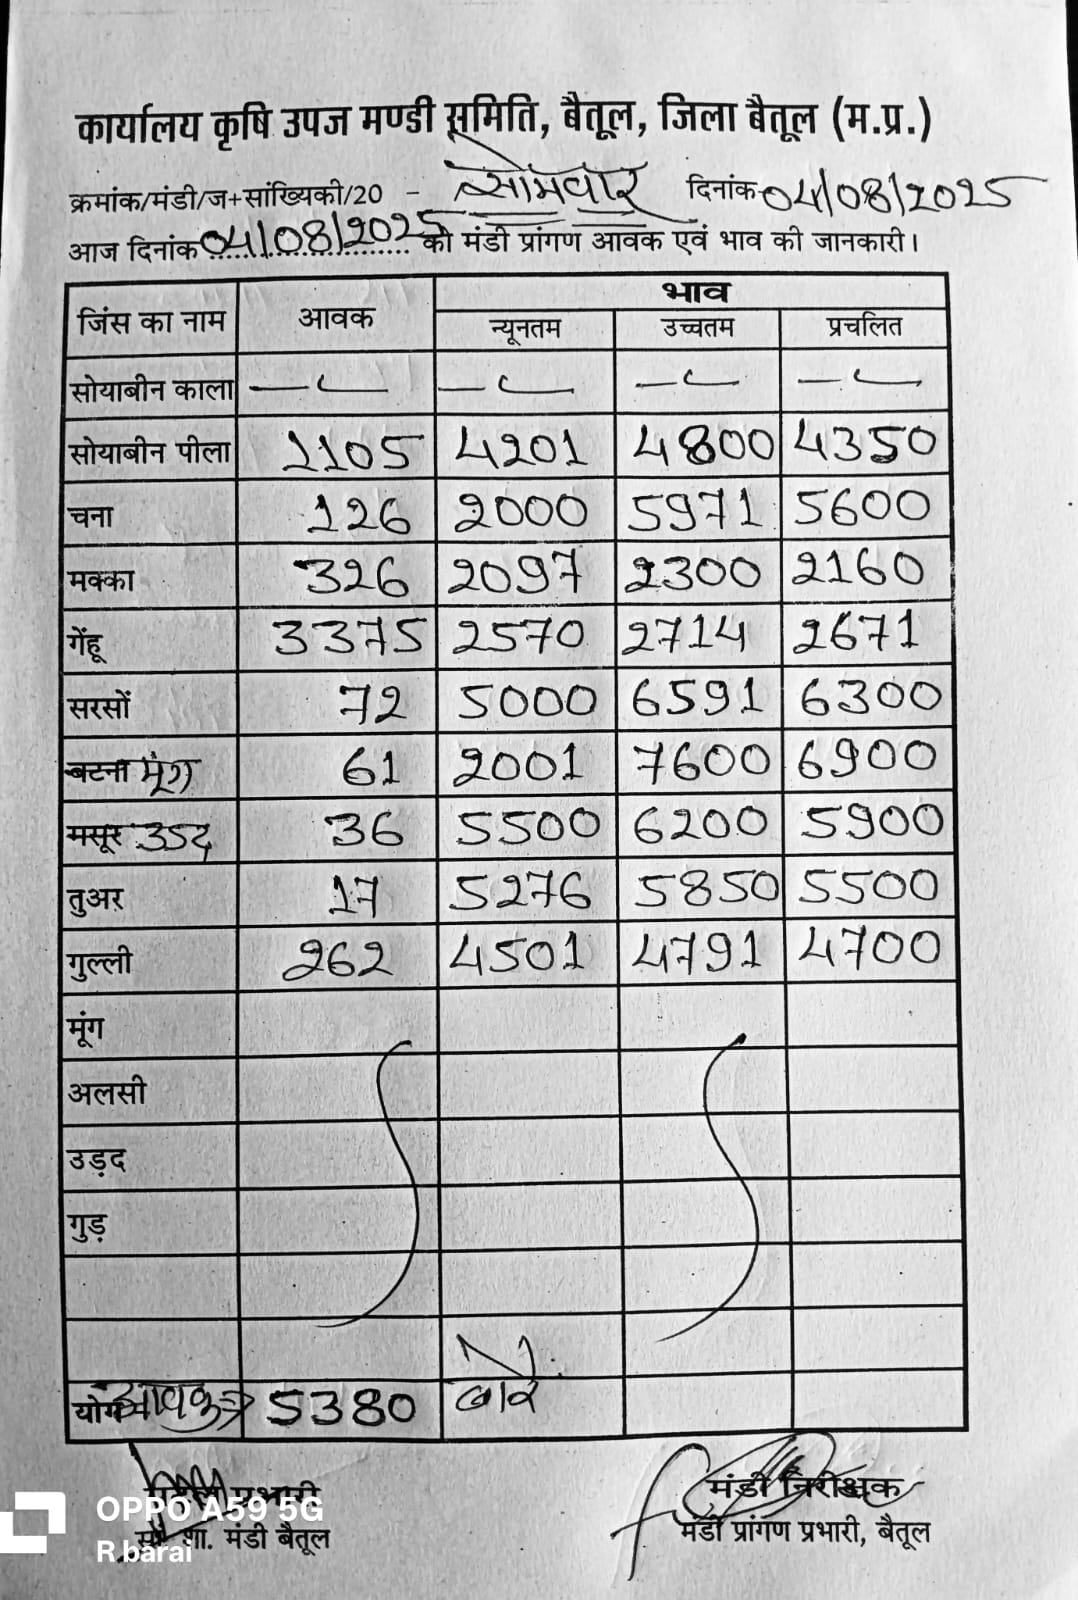 कार्यालय कृषि उपज मण्डी समिति, बैतूल, जिला बैतूल (म.प्र.)
क्रमांक/मंडी/ज+सांख्यिकी/20 - सोमवार दिनांक 04/08/2025
आज दिनांक 04/08/2025 को मंडी प्रांगण आवक एवं भाव की जानकारी।
जिंस का नाम आवक भाव
न्यूनतम उच्चतम प्रचलित
सोयाबीन काला — — — —
सोयाबीन पीला 1105 4201 4800 4350
चना 126 2000 5971 5600
मक्का 326 2097 2300 2160
गेंहू 3375 2570 2714 2671
सरसों 72 5000 6591 6300
बटना मूंग 61 2001 7600 6900
मसूर उड़द 36 5500 6200 5900
तुअर 17 5276 5850 5500
गुल्ली 262 4501 4791 4700
मूंग
अलसी
उड़द
गुड़
योग आवक 5380 बोरे
प्रभारी मंडी निरीक्षक
शा. मंडी बैतूल मंडी प्रांगण प्रभारी, बैतूल
OPPO A59 5G
R.barai